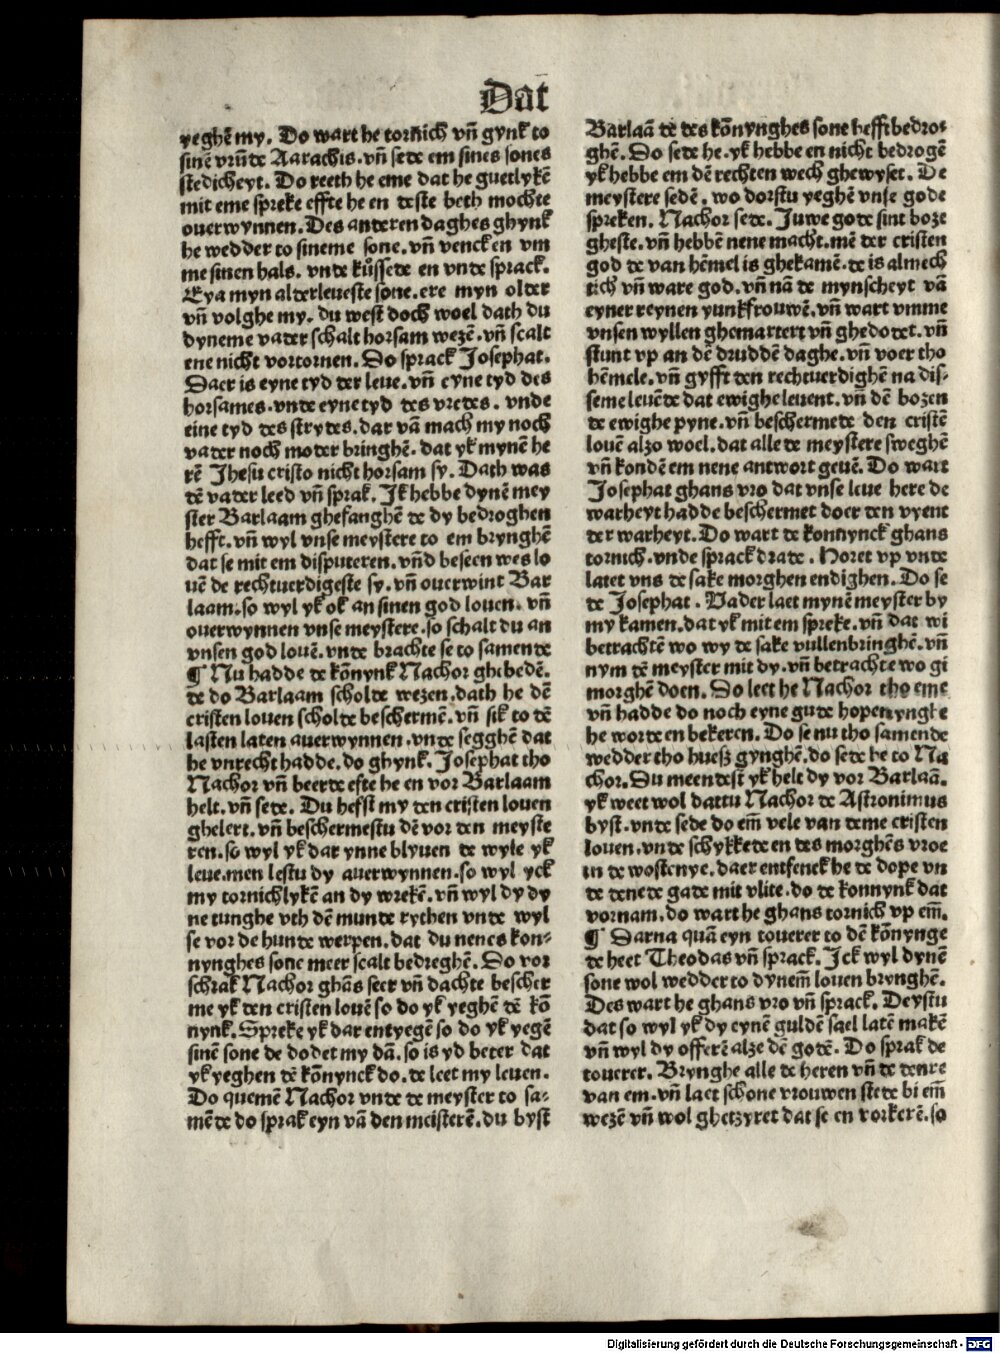 Dat
yeghē my. Do wart he tornich vn̄ gynk to
sinē vrūde Aarachis. vn̄ sede em sines sones
stedicheyt. Do reeth he eme dat he guetlykē
mit eme spreke effte he en deste beth mochte
ouerwynnen. Des anderen daghes ghynk
he wedder to sineme sone. vn̄ venck en vm
me sinen hals. vnde kůssede en vnde sprack.
Eya myn alderleueste sone. ere myn older
vn̄ volghe my. du west doch woel dath du
dyneme vader schalt horsam wezē. vn̄ scalt
ene nicht vortornen. Do sprack Josephat.
Daer is eyne tyd der leue. vn̄ eyne tyd des
horsames. vnde eyne tyd des vredes. vnde
eine tyd des strydes. dar vā mach my noch
vader noch moder bringhē. dat yk mynē he
rē Jhesu cristo nicht horsam sy. Dath was
dē vader leed vn̄ sprak. Jk hebbe dynē mey
ster Barlaam ghefanghē de dy bedroghen
hefft. vn̄ wyl vnse meystere to em brynghē
dat se mit em disputeren. vn̄d beseen wes lo
uē de rechtuerdigeste sy. vn̄ ouerwint Bar
laam. so wyl yk ok an sinen god louen. vn̄
ouerwynnen vnse meystere. so schalt du an
vnsen god louē. vnde brachte se to samende
¶ Nu hadde de kōnynk Nachor ghebedē.
de do Barlaam scholde wezen. dath he dē
cristen louen scholde beschermē. vn̄ sik to dē
lasten laten auerwynnen. vnde segghē dat
he vnrecht hadde. do ghynk. Josephat tho
Nachor vn̄ beerde efte he en vor Barlaam
helt. vn̄ sede. Du hefst my den cristen louen
ghelert. vn̄ beschermestu dē vor den meyste
ren. so wyl yk dar ynne blyuen de wyle yk
leue. men lestu dy auerwynnen. so wyl yck
my tornichlykē an dy wrekē. vn̄ wyl dy dy
ne tunghe vth dē munde rythen vnde wyl
se vor de hunde werpen. dat du nenes kon⸗
nynghes sone meer scalt bedreghē. Do vor
schrak Nachor ghās seer vn̄ dachte bescher
me yk den cristen louē so do yk yeghē dē kō
nynk. Spreke yk dar entyegē so do yk yegē
sinē sone de dodet my dā. so is yd beter dat
yk yeghen dē kōnynck do. de leet my leuen.
Do quemē Nachor vnde de meyster to sa⸗
mēde do sprak eyn vā den meisterē. du byst
Barlaā de des kōnynghes sone hefft bedro⸗
ghē. Do sede he. yk hebbe en nicht bedrogē
yk hebbe em dē rechten wech ghewyset. De
meystere sedē. wo dorstu yeghē vnse gode
spreken. Nachor sede. Juwe gode sint boze
gheste. vn̄ hebbē nene macht. mē der cristen
god de van hēmel is ghekamē. de is almech
tich vn̄ ware god. vn̄ nā de mynscheyt vā
eyner reynen yunkfrouwē. vn̄ wart vmme
vnsen wyllen ghemartert vn̄ ghedodet. vn̄
stunt vp an dē drudde͞ daghe. vn̄ voer tho
hēmele. vn̄ gyfft den rechtuerdighē na dis⸗
seme leuēde dat ewighe leuent. vn̄ dē bozen
de ewighe pyne. vn̄ beschermede den cristē
louē alzo woel. dat alle de meystere sweghē
vn̄ kondē em nene antwort geuē. Do wart
Josephat ghans vro dat vnse leue here de
warheyt hadde beschermet doer den vyent
der warheyt. Do wart de konnynck ghans
tornich. vnde sprack drade. Horet vp vnde
latet vns de sake morghen endighen. Do se
de Josephat. Vader laet mynē meyster by
my kamen. dat yk mit em spreke. vn̄ dat wi
betrachtē wo wy de sake vullenbringhē. vn̄
nym dē meyster mit dy. vn̄ betrachte wo gi
morghē doen. Do leet he Nachor tho eme
vn̄ hadde do noch eyne gude hopenynghe
he worde en bekeren. Do se nu tho samende
wedder tho huesz gynghē. do sede he to Na
chor. Du meendest yk helt dy vor Barlaā.
yk weet wol dattu Nachor de Astronimus
byst. vnde sede do em̄ vele van deme cristen
louen. vnde schykkede en des morghēs vroe
in de wostenye. daer entfenck he de dope vn
de denede gade mit vlite. do de konnynk dat
vornam. do wart he ghans tornich vp em̄.
¶ Darna quā eyn touerer to dē kōnynge
de heet Theodas vn̄ sprack. Jck wyl dynē
sone wol wedder to dynem̄ louen brynghē.
Des wart he ghans vro vn̄ sprack. Deystu
dat so wyl yk dy eynē guldē sael latē makē
vn̄ wyl dy offerē alze dē godē. Do sprak de
touerer. Brynghe alle de heren vn̄ de denre
van em. vn̄ laet schone vrouwen stede bi em̄
wezē vn̄ wol ghetzyret dat se en vorkerē. so
Digitalisierung gefördert durch die Deutsche Forschungsgemeinschaft - DFG